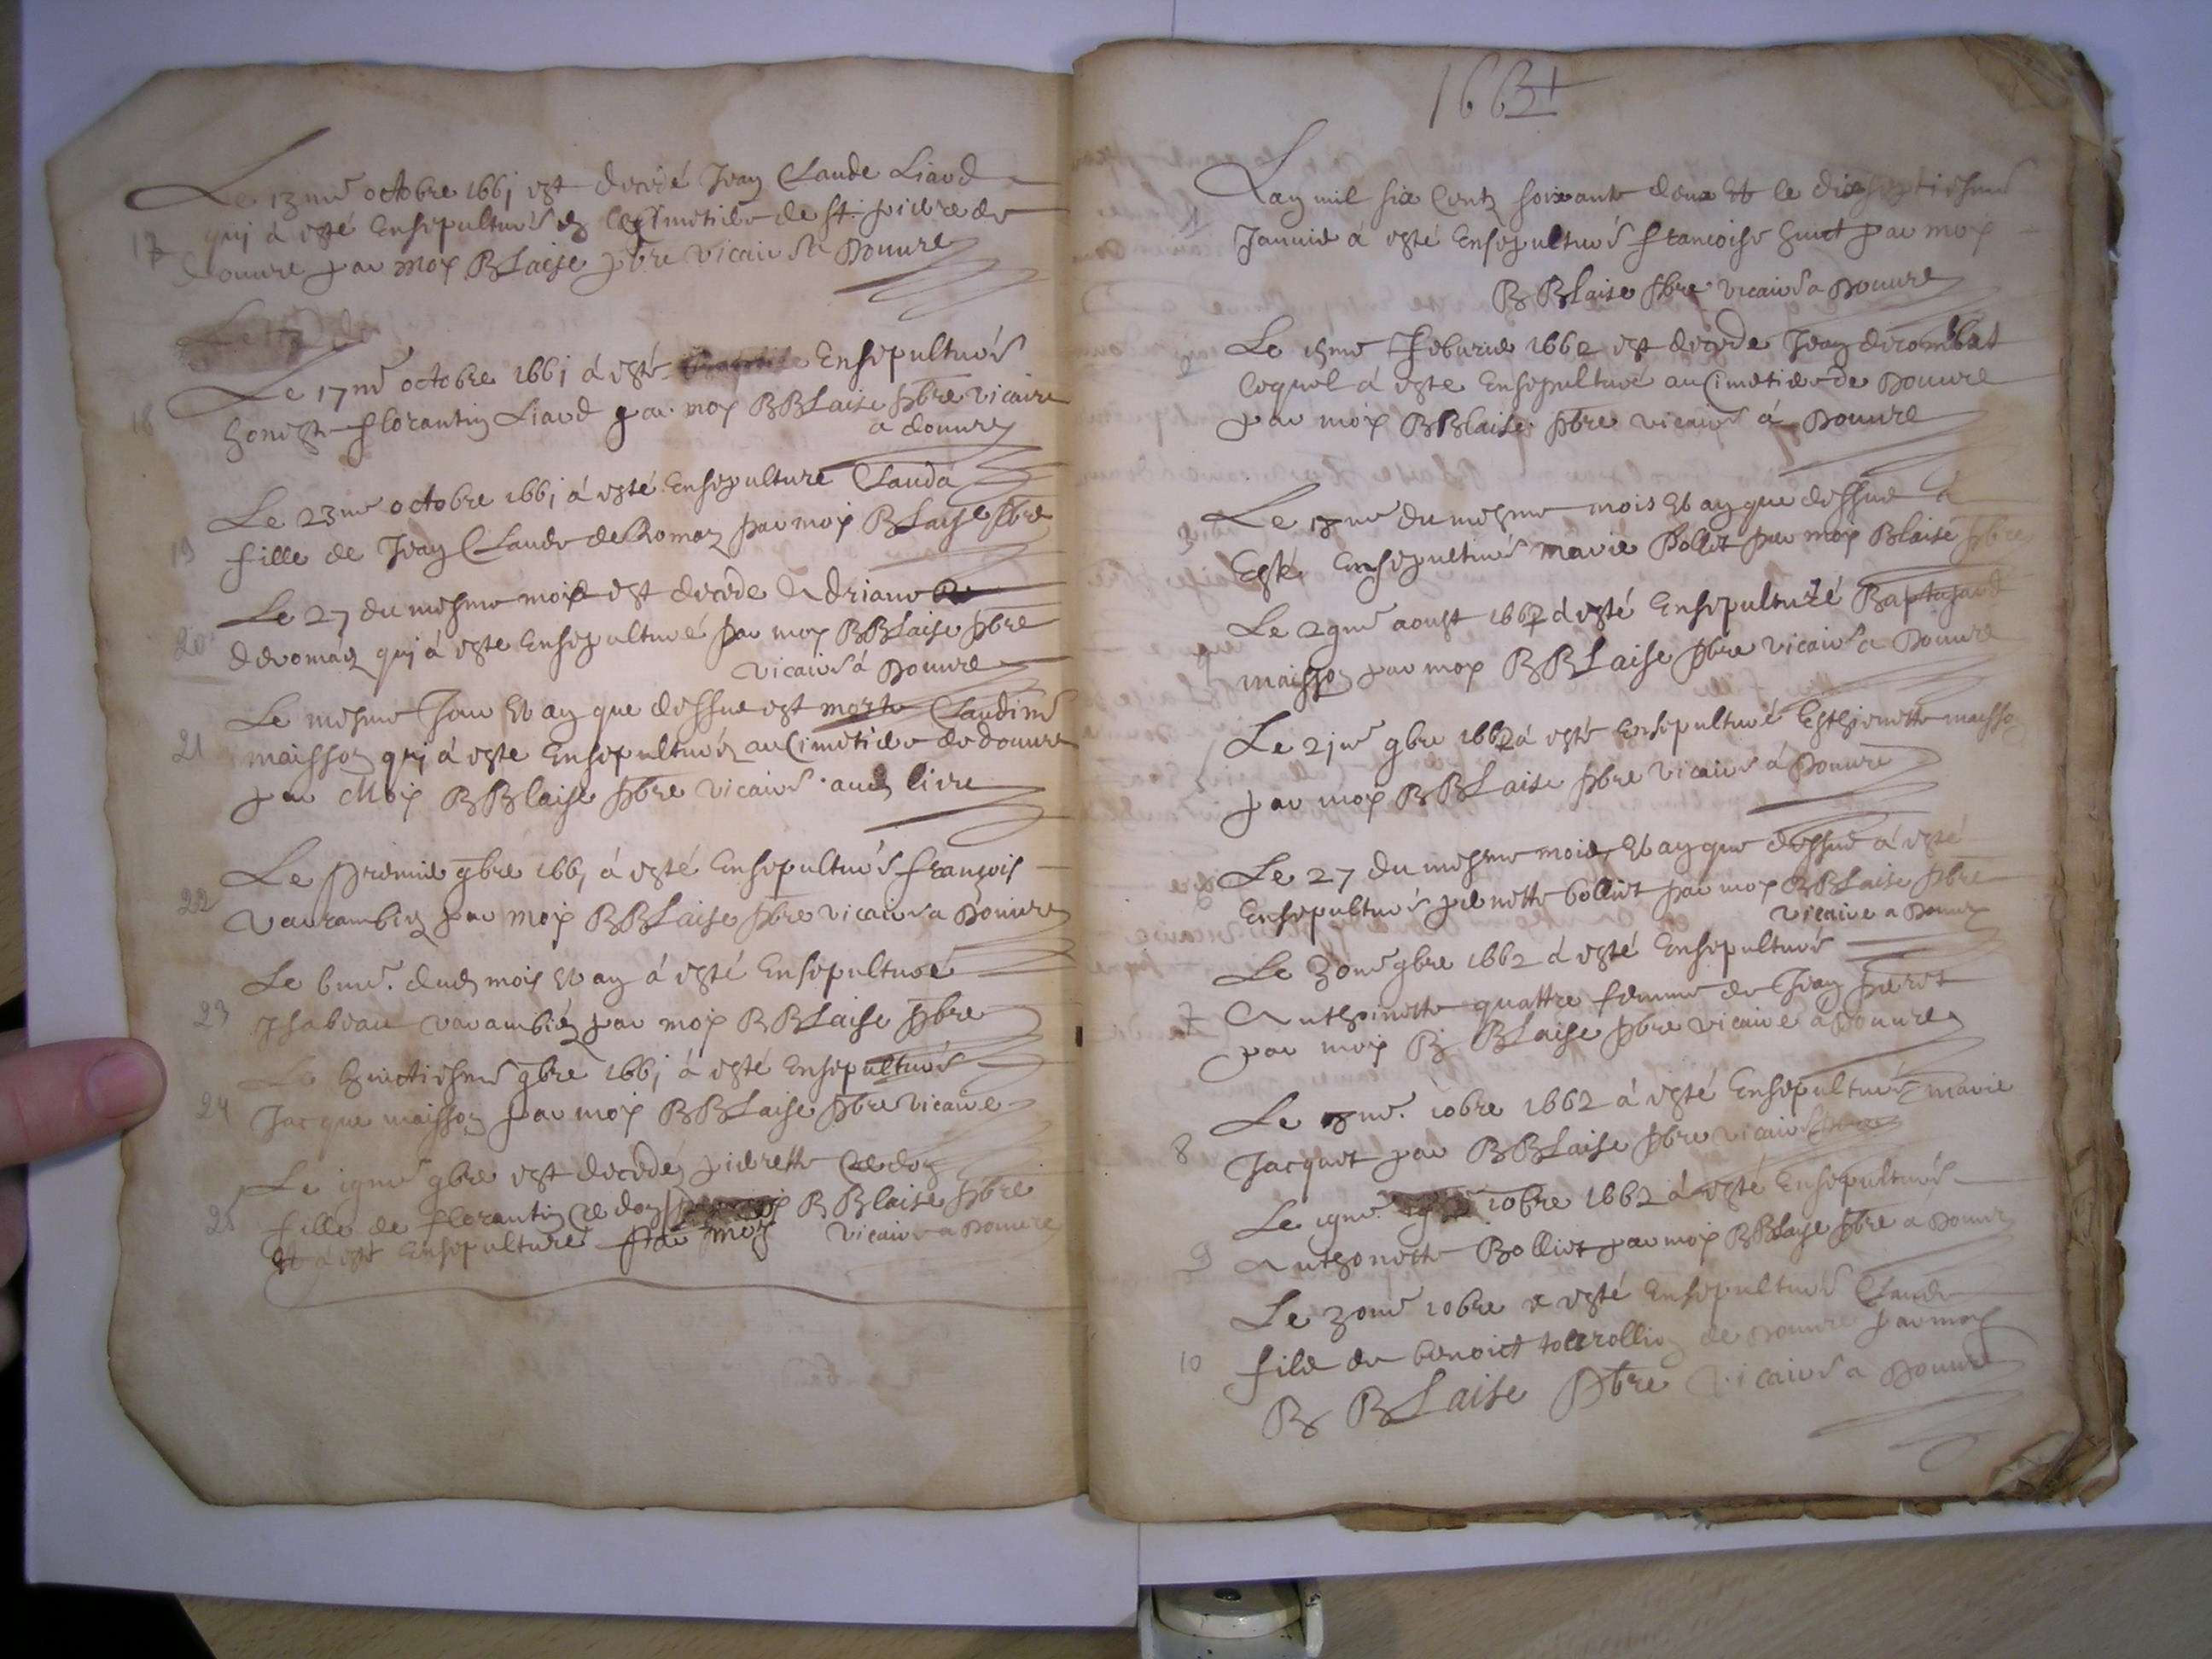 Le 13me octobre 1661 est decedé Jean Claude Liaud
17 qui à esté Ensepulturé es Cimetiere de St: pierre de
douure par moy BLaise pbre vicaire a Douure
Le 17
18 Le 17me octobre 1661 á esté Ensepulturé
honeste florantin Liaud par moy BBLaise pbre vicaire
a douure
Le 23me octobre 1661 á esté Ensepulturé Clauda
19 fille de Jean Claude de Romaz par moy BLaise pbre
Le 27 du mesme mois est decede Adriane
20 deromaz qui á este Ensepulturé par moy BBLaise pbre
vicaire á Douure
Le mesme Jour Et an que dessus est morte Claudine
21 maisson qui á este Ensepulturé au Cimetiere de douure
par Moy BBlaise pbre vicaire aud livre
Le premier 9bre 1661 á esté Ensepulturé françois
22 Varambin par moy BBLaise pbre vicaire a Douure
Le 6me. dud mois Et an á esté Ensepulturé
23 Isabeau varambin par moy BBLaise pbre
Le huictiesme 9bre 1661 á esté Ensepulturé
24 Jacque maisson par moy BBLaise pbre vicaire
Le 19me 9bre est decedé pierrette
25 fille de florantin BBlaise pbre
Et á esté Ensepulturé par moy vicaire a Douure
1662
1 Lan mil six Centz soixante deux Et le dixseptiesme
Januier á esté Ensepulturé francoise huict par moy
B BLaise pbre vicaire a Douure
2 Le 15me feburier 1662 est decede Jean decombat
lequel á este Ensepulturé au Cimetiere de Douure
par moy BBlaise pbre vicaire á Douure
3 Le 17me du mesme mois Et an que dessus á
Esté Ensepulturé marie Bolliet par moy Blaise pbre
Le 29me aoust 1662 á esté Ensepulturé
maisson par moy BBLaise pbre vicaire a Douure
Le 21me 9bre 1662 á esté Ensepulturé Esthienette maisson
par moy BBLaise pbre vicaire á Douure
Le 27 du mesme mois Et an que dessus á esté
Ensepulturé pernette bolliet par moy BBLaise pbre
vicaire a Douure
Le 30me 9bre 1662 á esté Ensepulturé
7 Anthoinette quattre femme de Jean
par moy B BLaise pbre vicaire a Douure
Le me. 10bre 1662 á esté Ensepulturé marie
8 Jacquet par BBLaise pbre vicaire
Le 19me 10bre 1662 á esté Ensepulturé
9 Anthonette Bolliet par moy BBLaise pbre a Douure
Le 30me 10bre á esté Ensepulturé Claude
10 fils de benoict tollerollion de Douure par moy
B BLaise Pbre vicaire a Douure